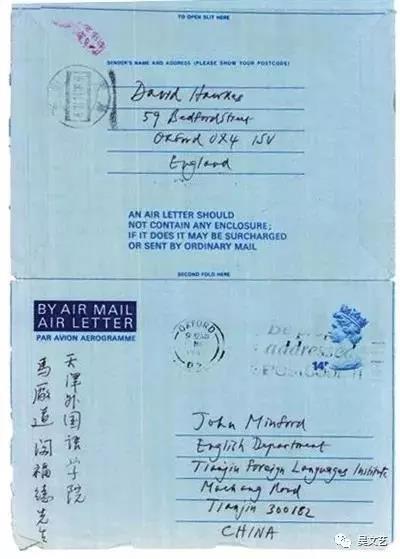 TO OPEN SLIT HERE
SENDER'S NAME AND ADDRESS (PLEASE SHOW YOUR POSTCODE)
David Hawkes
59 Bedford Street
Oxford OX4 1SV
England
AN AIR LETTER SHOULD
NOT CONTAIN ANY ENCLOSURE;
IF IT DOES IT MAY BE SURCHARGED
OR SENT BY ORDINARY MAIL
SECOND FOLD HERE
BY AIR MAIL
AIR LETTER
PAR AVION AEROGRAMME
OXFORD
addressed
14P
天津外国语学院
马厰道 闵福德先生
John Minford
English Department
Tianjin Foreign Languages Institute
Machang Road
Tianjin 300182
CHINA
吴文艺